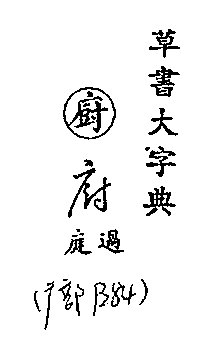 草書大字典
廚
廚
過庭
(广部 P384)